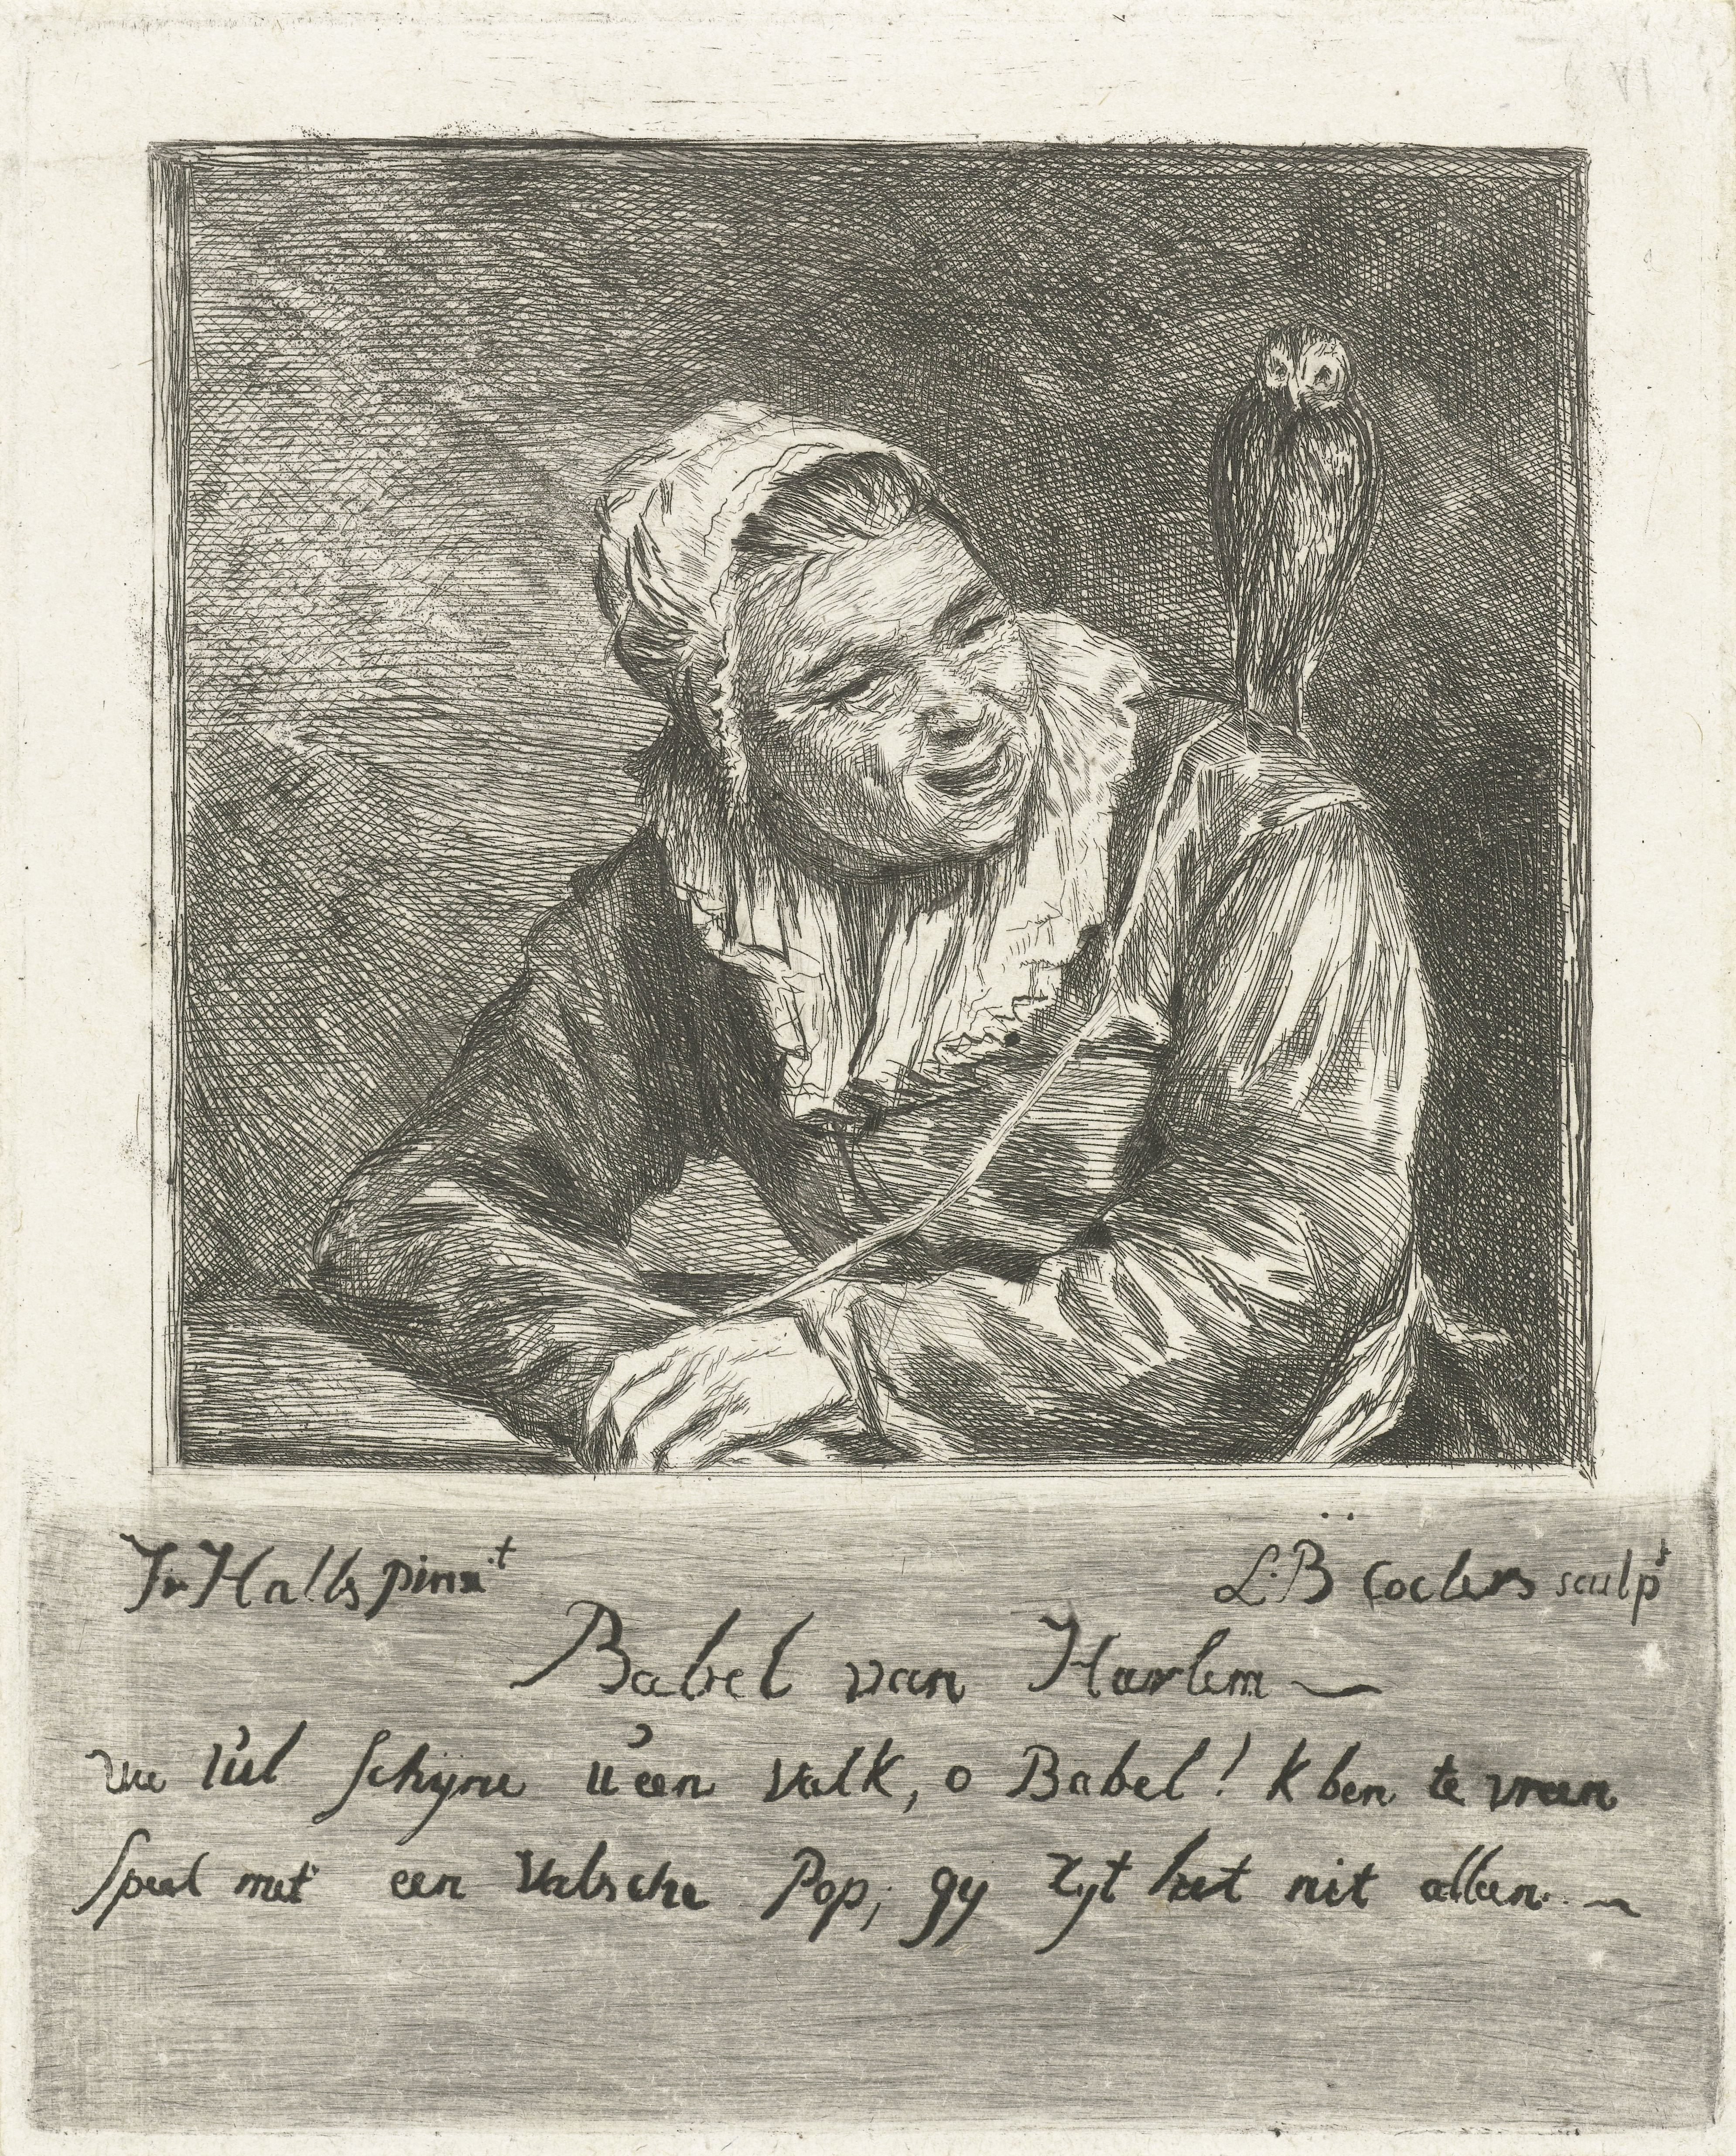 Fr. Halls pinxit
L.B Coclers sculpt
Babel van Harlem
uw uil schijne u een valk, o Babel! k ben te vreen
speel met een valsche Pop, gy zyt het niet alleen.